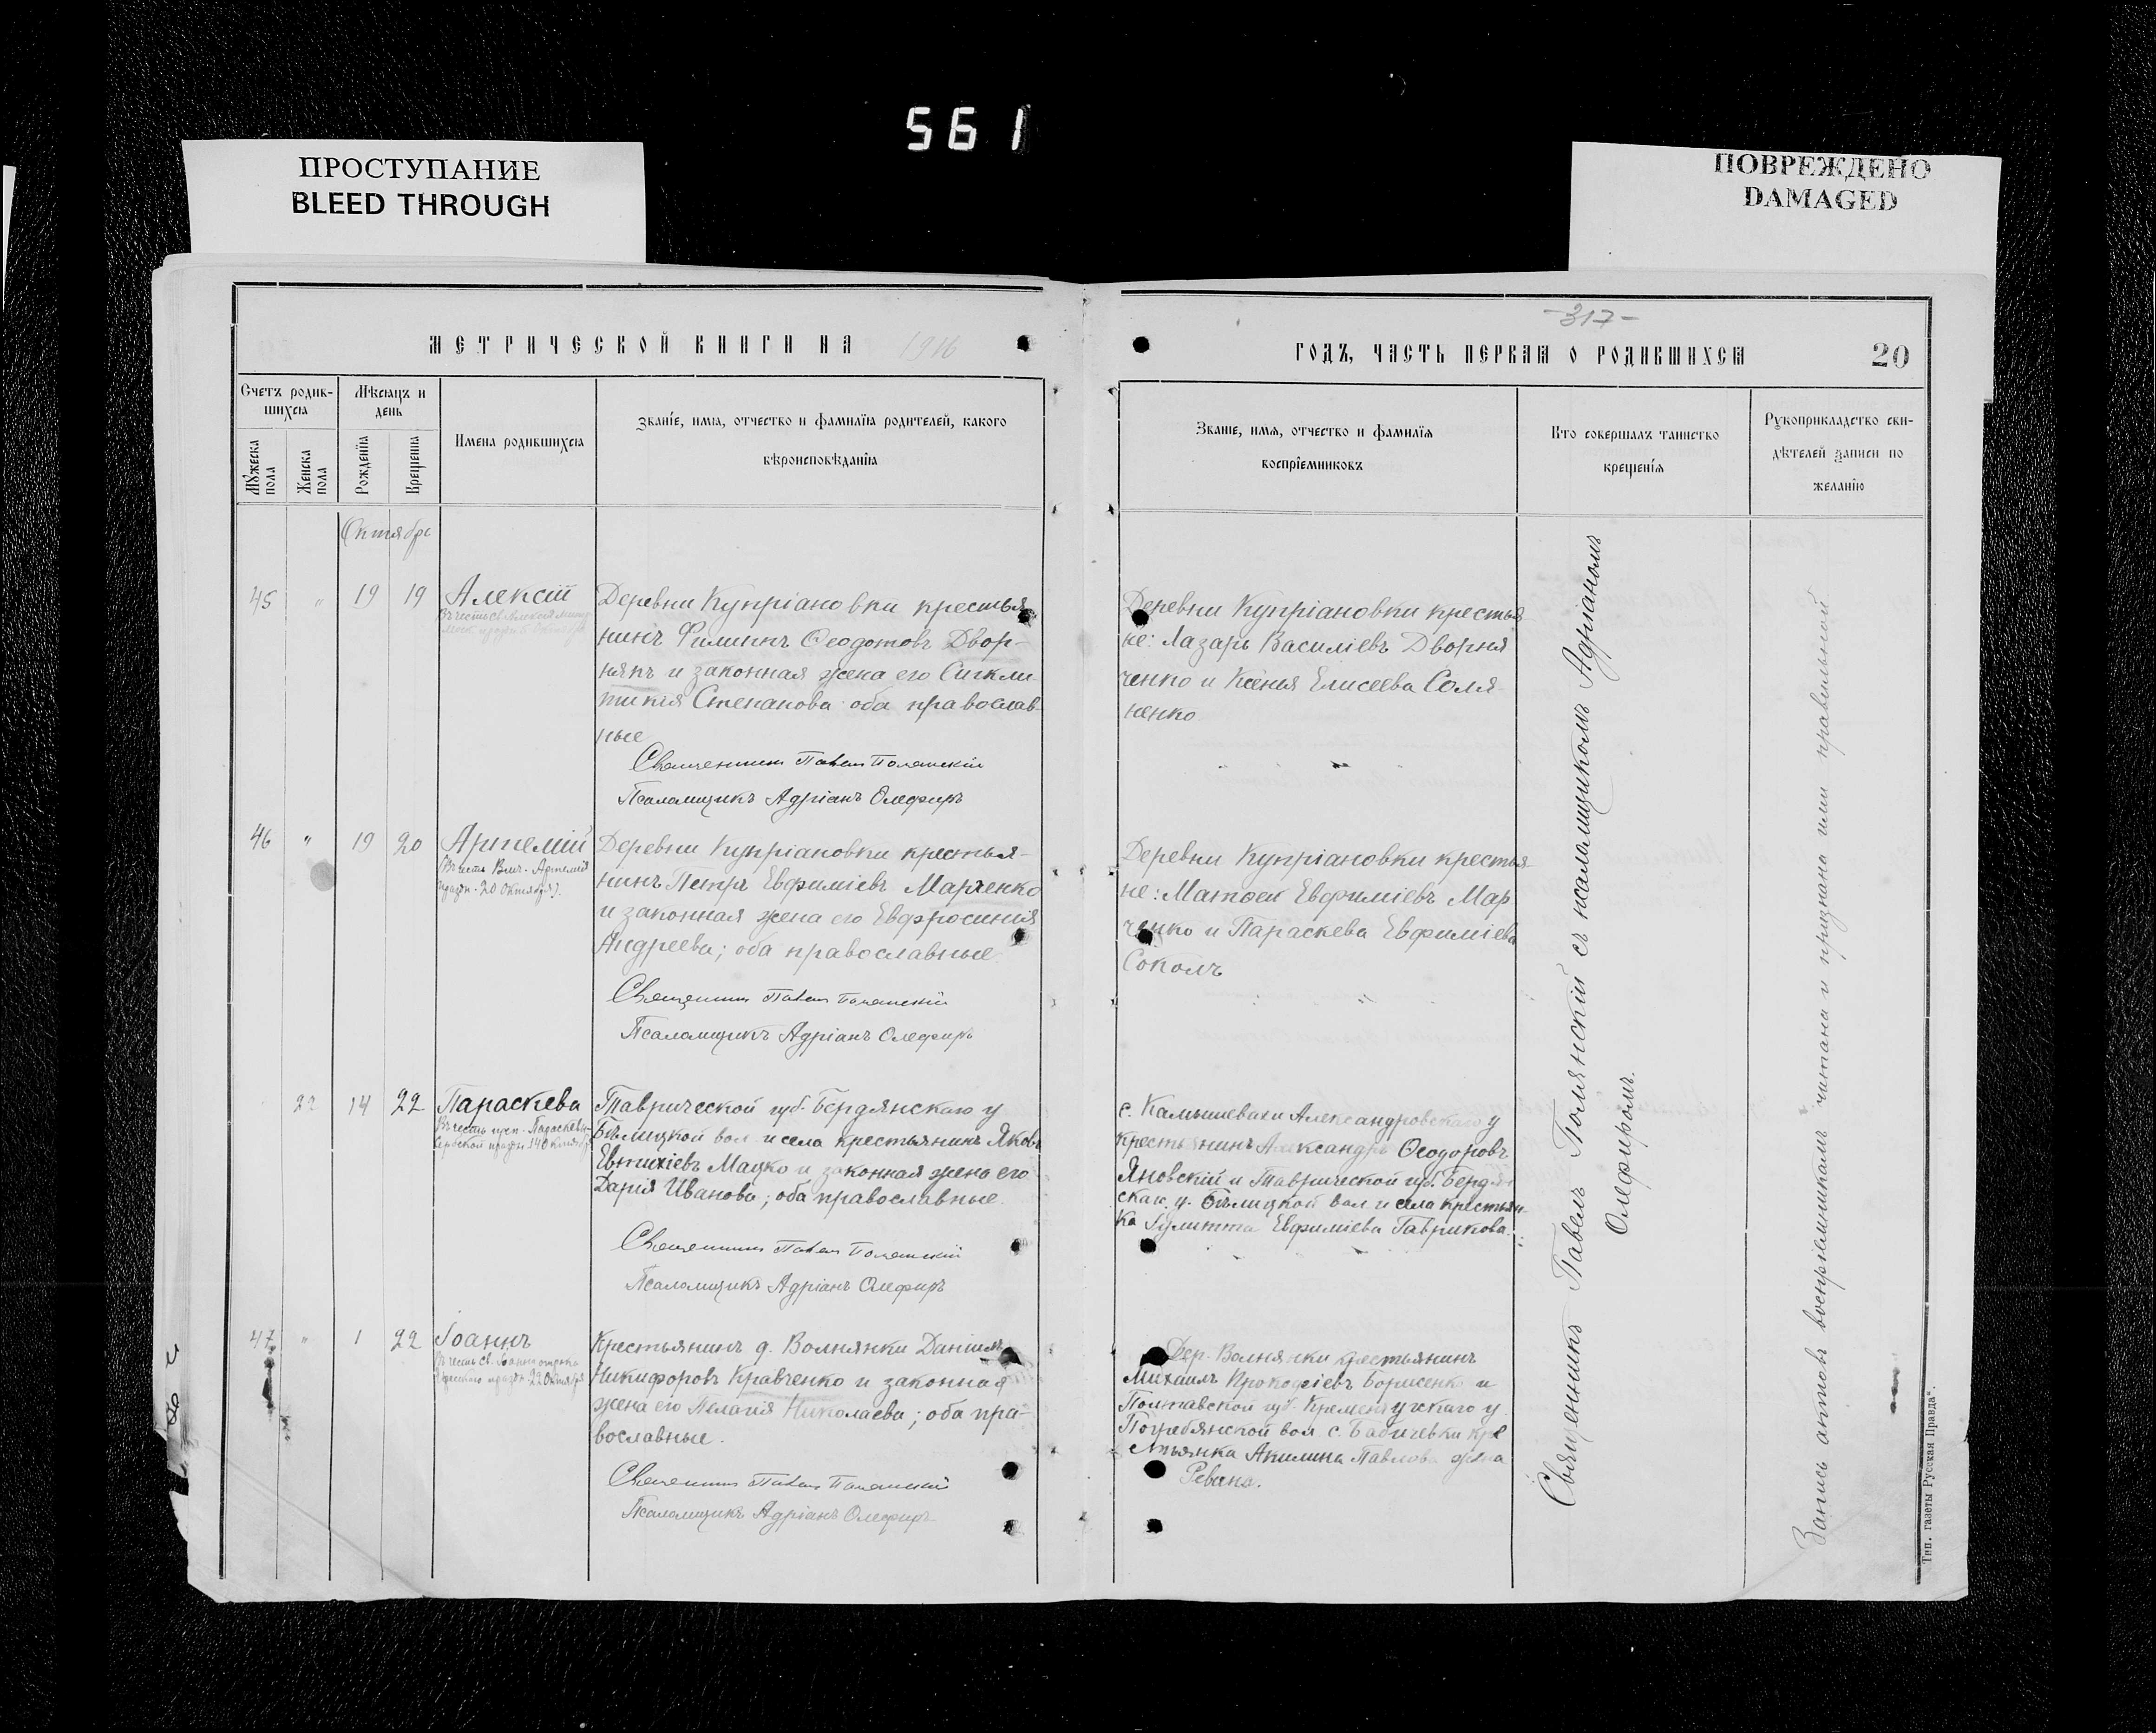 561
ПРОСТУПАНИЕ
BLEED THROUGH
ПОВРЕЖДЕНО
DAMAGED
МЕТРИЧЕСКОЙ КНИГИ НА 1916
Счетъ родив-
шихся
Мѣсяцъ и
день
Мужеска пола
Женска пола
Рожденія
Крещенія
Имена родившихся
Званіе, имя, отчество и фамилія родителей, какого
вѣроисповѣданія
Октябрь
45 " 19 19 Алексій
Деревни Купріановки крестья
нинъ Филиппъ Ѳеодотовъ Двор-
някъ и законная жена его Сигкли
тикія Степанова оба православ
ные
Священникъ Павелъ Полянскій
Псаломщикъ Адріанъ Олефиръ
46 " 19 20 Артемій
(Въ честь Влмч. Артемія
праздн. 20 Октября).
Деревни Купріановки крестья-
нинъ Петръ Евфиміевъ Марченко
и законная жена его Евфросинія
Андреева; оба православные
Священникъ Павелъ Полянскій
Псаломщикъ Адріанъ Олефиръ
22 14 22 Параскева
Въ честь преп. Параскевы
Сербской праздн. 14 Октября
Таврической губ. Бердянскаго у
Бѣлицкой вол. и села крестьянинъ Яковъ
Евтихіевъ Мацко и законная жена его
Дарія Иванова; оба православные
Священникъ Павелъ Полянскій
Псаломщикъ Адріанъ Олефиръ
47 " 1 22 Іоаннъ
праздн. 22 Октября
Крестьянинъ д. Волнянки Даніилъ
Никифоровъ Кравченко и законная
жена его Пелагія Николаева; оба пра-
вославные.
Священникъ Павелъ Полянскій
Псаломщикъ Адріанъ Олефиръ
-317-
ГОДЪ, ЧАСТЬ ПЕРВАЯ О РОДИВШИХСЯ
20
Званіе, имя, отчество и фамилія
воспріемниковъ
Кто совершалъ таинство
крещенія
Рукоприкладство сви-
дѣтелей записи по
желанію
Деревни Купріановки крестья
не: Лазарь Василіевъ Дворня
ченко и Ксенія Елисеева Соля
ненко
Деревни Купріановки крестья-
не: Матѳей Евфиміевъ Мар
ченко и Параскева Евфиміева
Соколъ
с. Камышевахи Александровскаго у
крестьянинъ Александръ Ѳеодоровъ
Яновскій и Таврической губ. Бердян
скаго у. Бѣлицкой вол. и села крестьян-
ка Іулитта Евфиміева Гаврикова.
Дер. Волнянки крестьянинъ
Михаилъ Прокофіевъ Борисенко и
Полтавской губ. Кременчугскаго у
Погребянской вол. с. Бабичевки кре
стьянка Акилина Павлова жена
Ревана.
Священникъ Павелъ Полянскій съ псаломщикомъ Адріаномъ
Олефиромъ.
Запись актовъ воспріемникамъ читана и признана ими правильной
Тип. газеты „Русская Правда“.